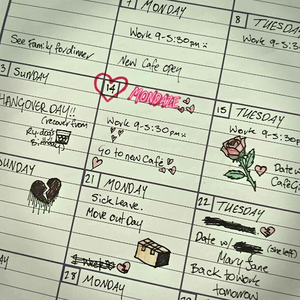 7 MONDAY
8 TUESDAY
Work 9-5:30pm
Work 9-5:
See Family for dinner
New Cafe open
13 SUNDAY
14 MONDATE
15 TUESDAY
HANGOVER DAY!!
(recover from
Birthday)
Work 9-5:30pm
Work 9-5:30p
Go to new Cafe
Date w/
Cafe
SUNDAY
21 MONDAY
22 TUESDAY
Sick leave.
Move out Day
Date w/
Mary Jane
Back to Work
tomorrow
28 MONDAY